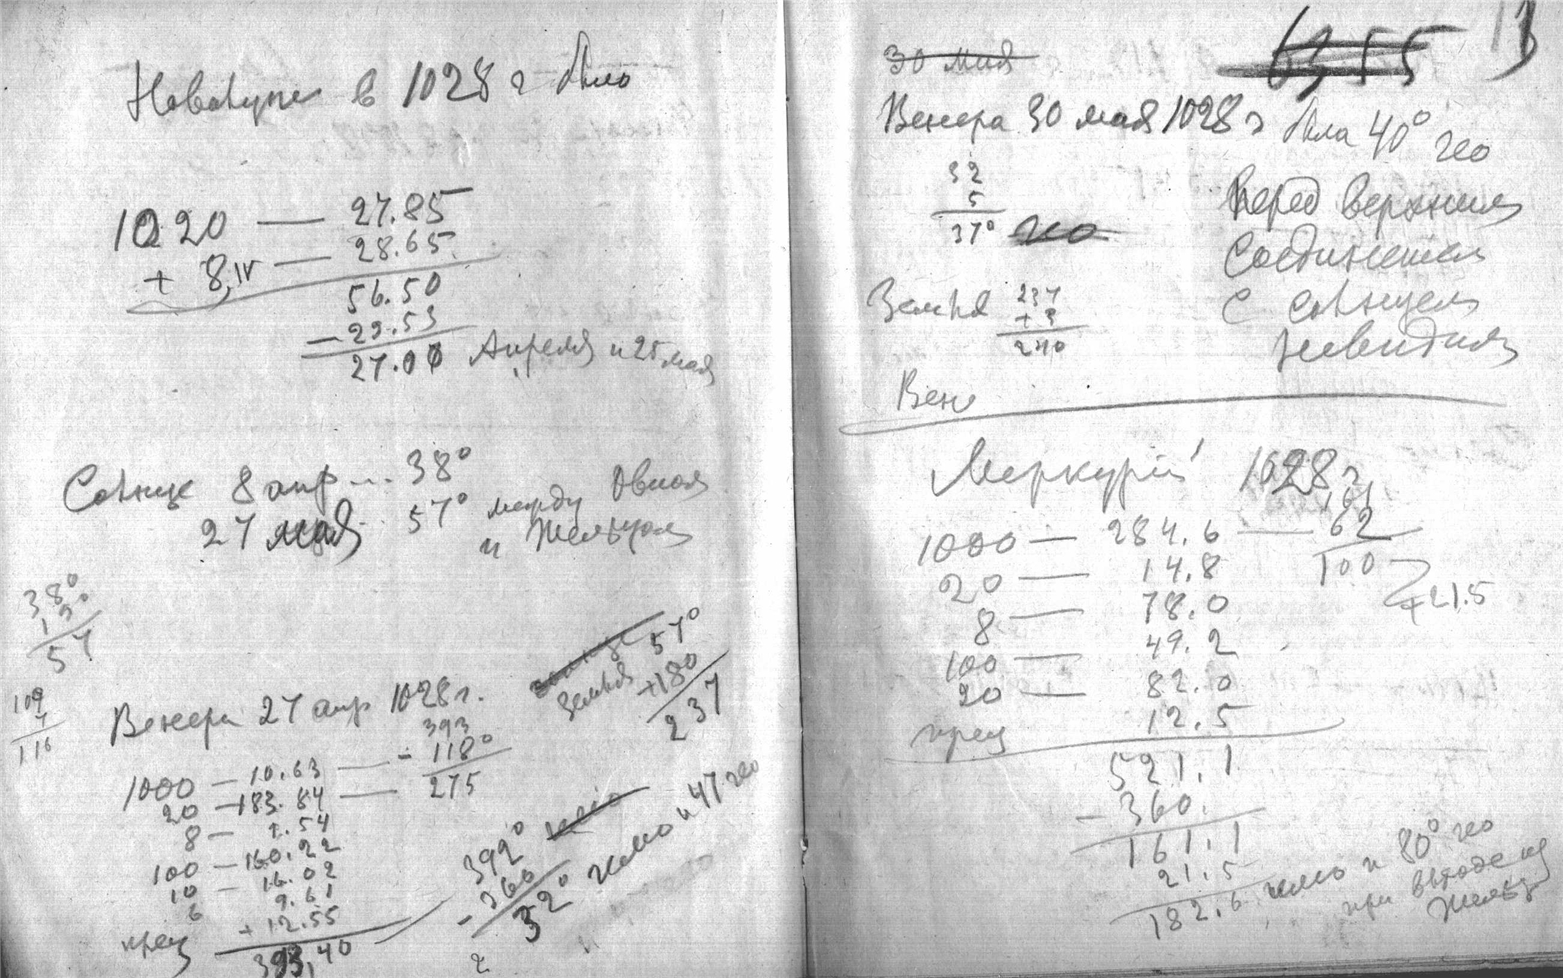 Новолуние в 1028 г было
1020 — 27.85
+ 8,IV — 28.65
56.50
— 29.53
27.00 Апреля и 25 мая
Солнце 8 апр... 38°
27 мая 57° между Овном
и Тельцом
38°
19°
57
109
7
116
57°
Земля +180
237
Венера 27 апр 1028 г.
393
1000 — 10.63 — - 118°
20 — 183.84 — 275
8 — 1.54
100 — 160.22
10 — 16.02
6 9.61
прец + 12.55
393,40
392°
- 360
32° гелио и 47 гео
2
30 мая
63,55
13
Венера 30 мая 1028 г была 40° гео
32
5
37° гео
перед верхним
соединением
с солнцем
невидима
Земля 237
+ 3
240
Вене
Меркурий 1028 г.
161
1000 — 284.6 — 62
20 — 14.8 100
8 — 78.0 +21.5
100 — 49.2
20 — 82.0
прец 12.5
521.1
- 360.
161.1
21.5
182.6 гелио и 80° гео
при выходе из
Тельца